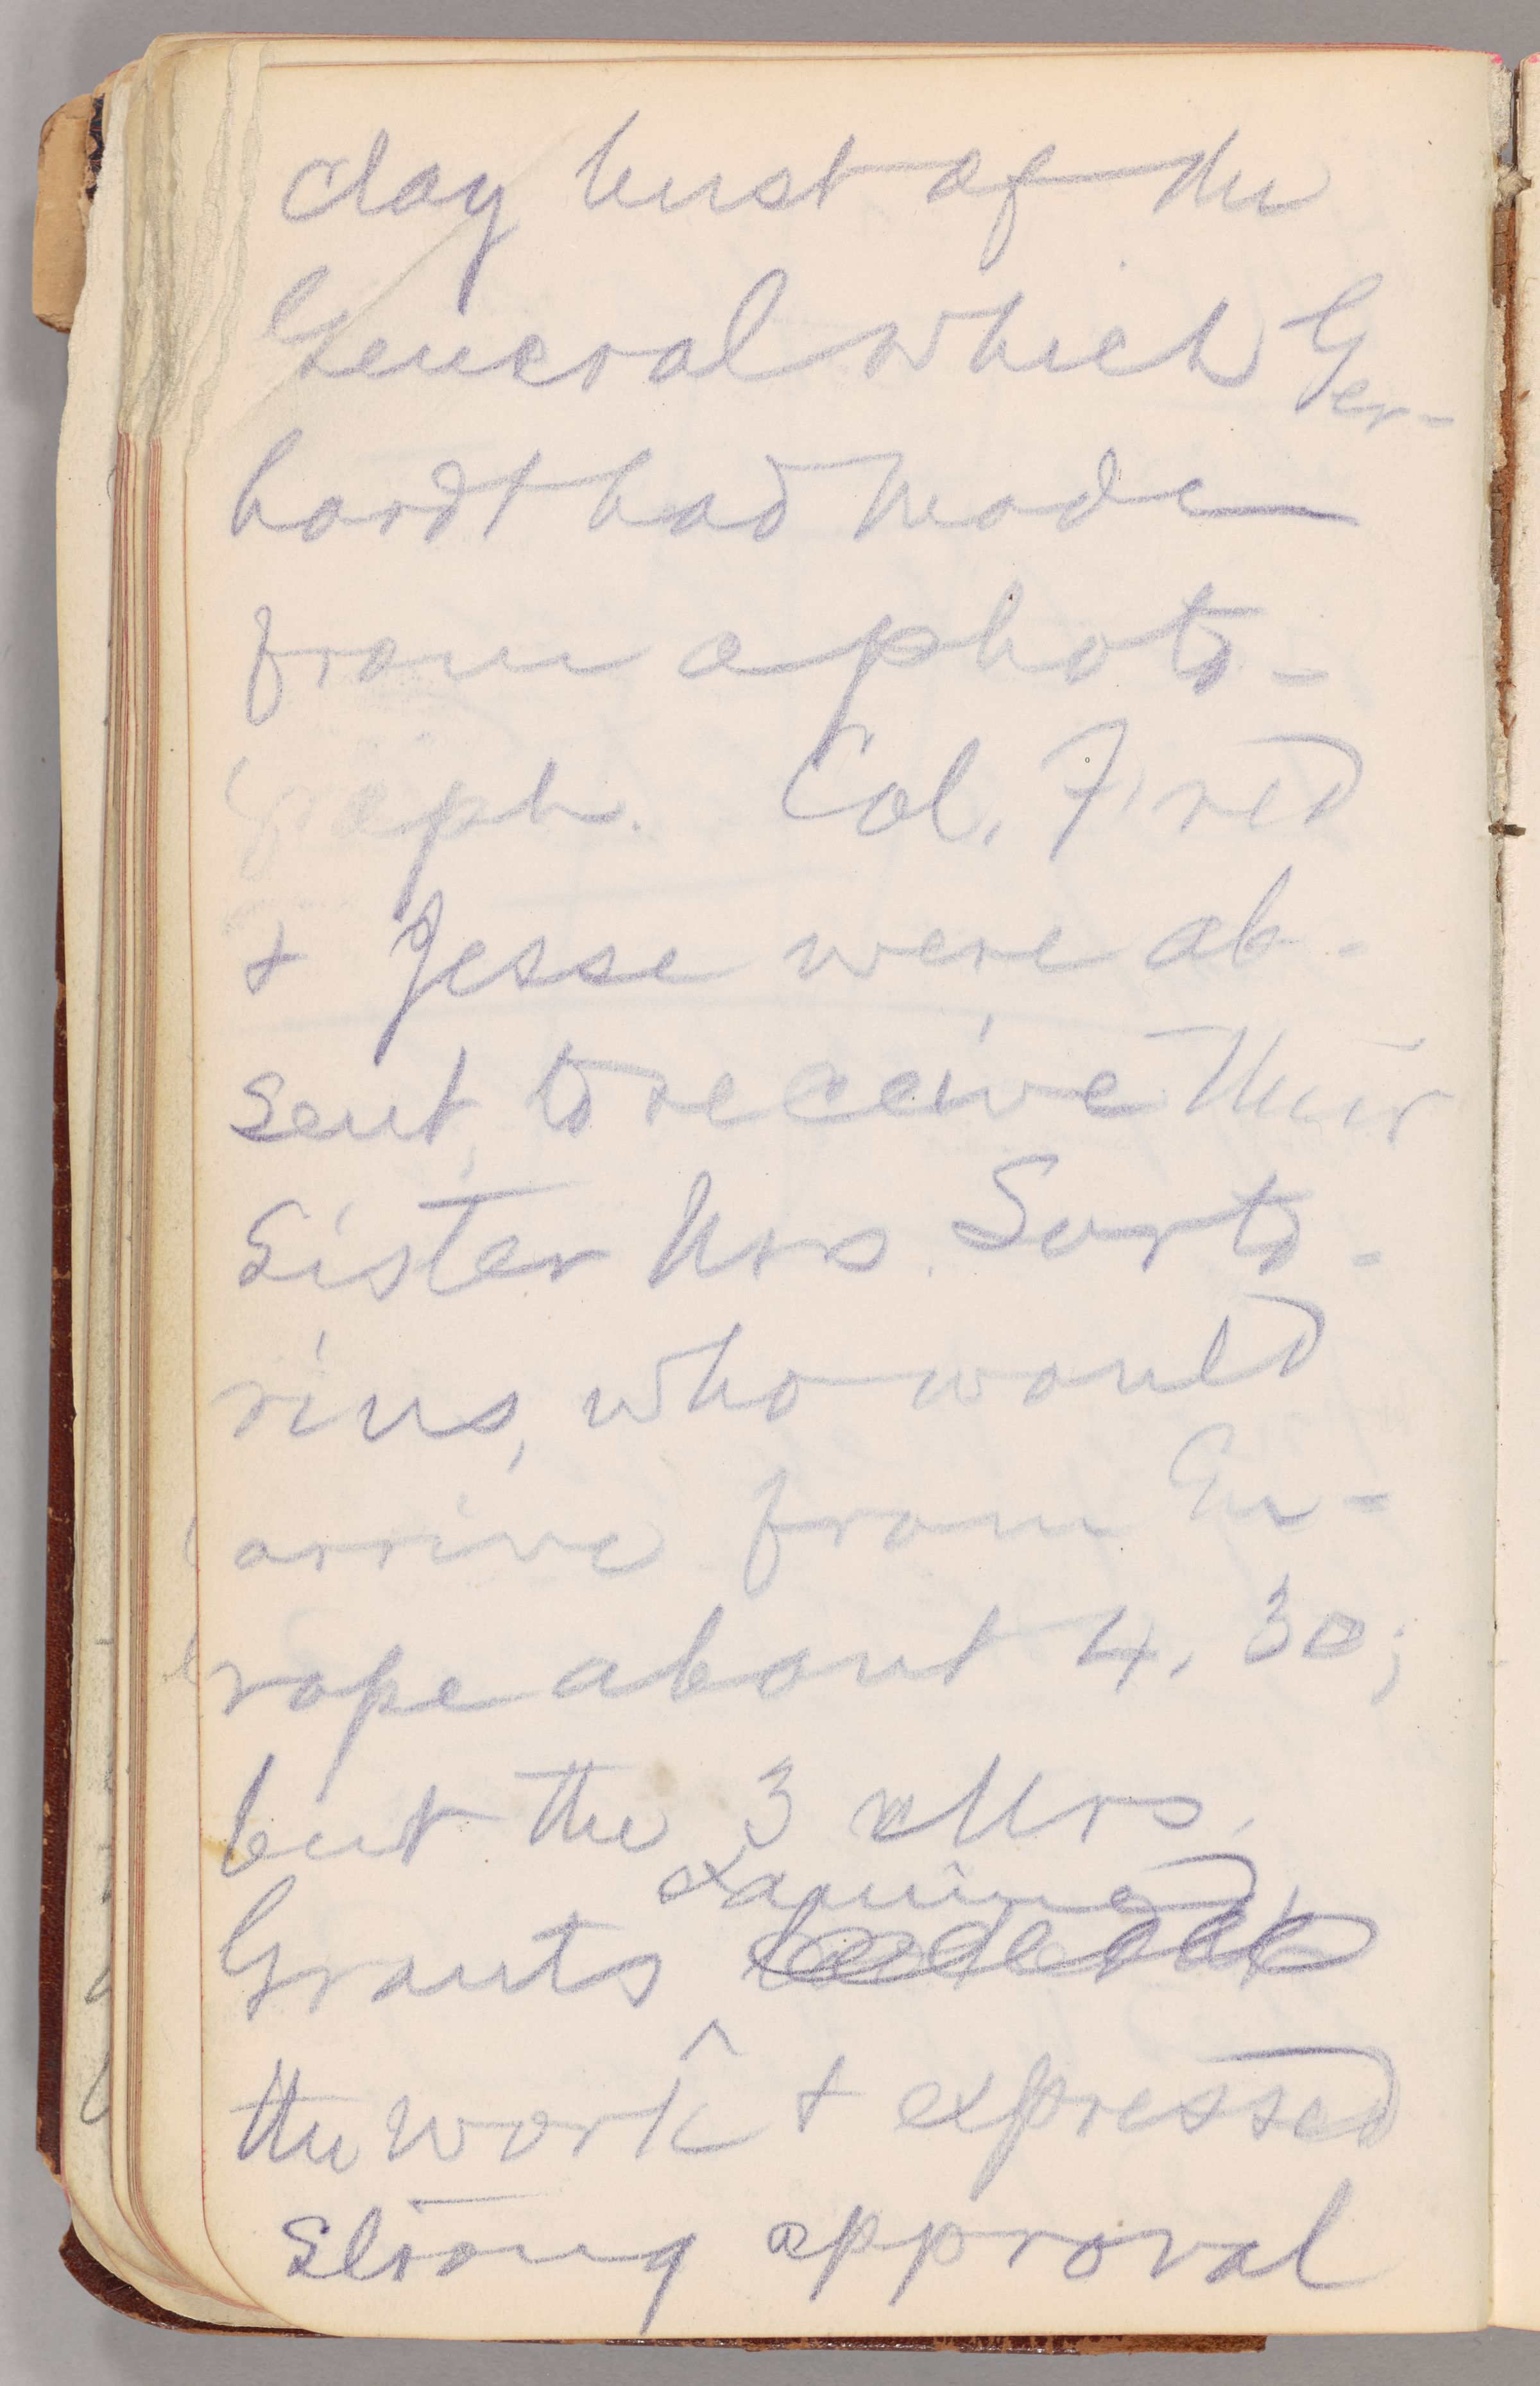 clay bust of the
General which Ger-
hardt had made
from a photo-
graph. Col. Fred
+ Jesse were ab-
sent, to receive their
sister Mrs. Sarto-
rius, who would
arrive from Eu-
rope about 4.30;
but the 3 Mrs.
examined
Grants
the work + expressed
strong approval